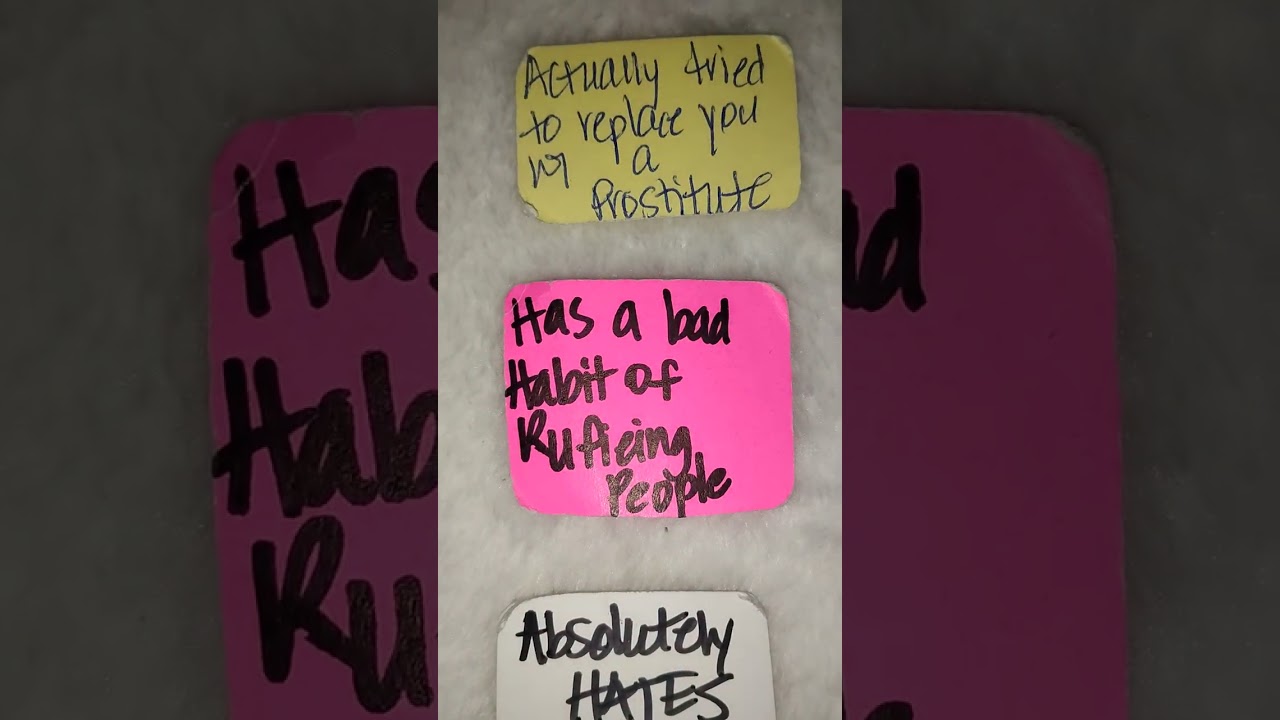 Actually tried
to replace you
w/ a
Prostitute
Has a bad
Habit of
Ruficing
People
Absolutely
HATES